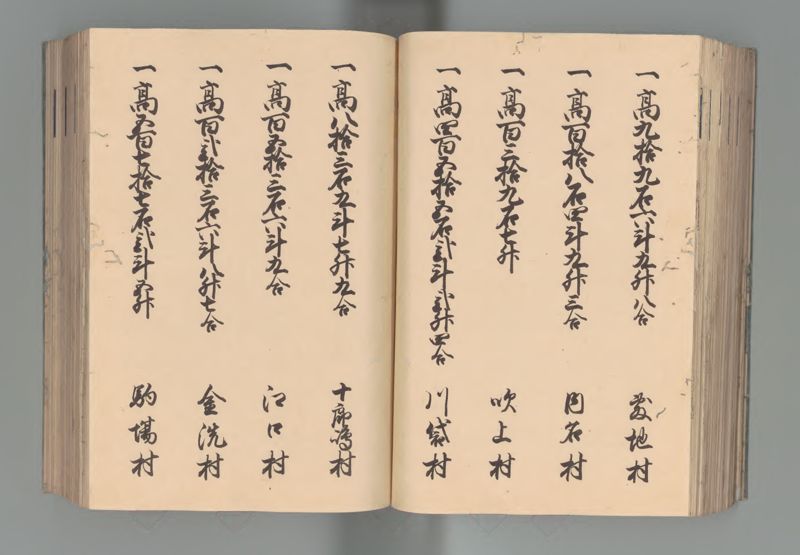 一高九拾九石六斗九升八合 地村
一高百拾八石四斗九升三合 村
一高百三拾九石七升 吹上村
一高四百五拾五石斗弐升四合 川袋村
一高八拾三石五斗七升九合 十郎嶋村
一高百五拾三石六斗九合 江口村
一高百弐拾三石六斗八升七合 金洗村
一高五百七拾七石斗五升 駒場村